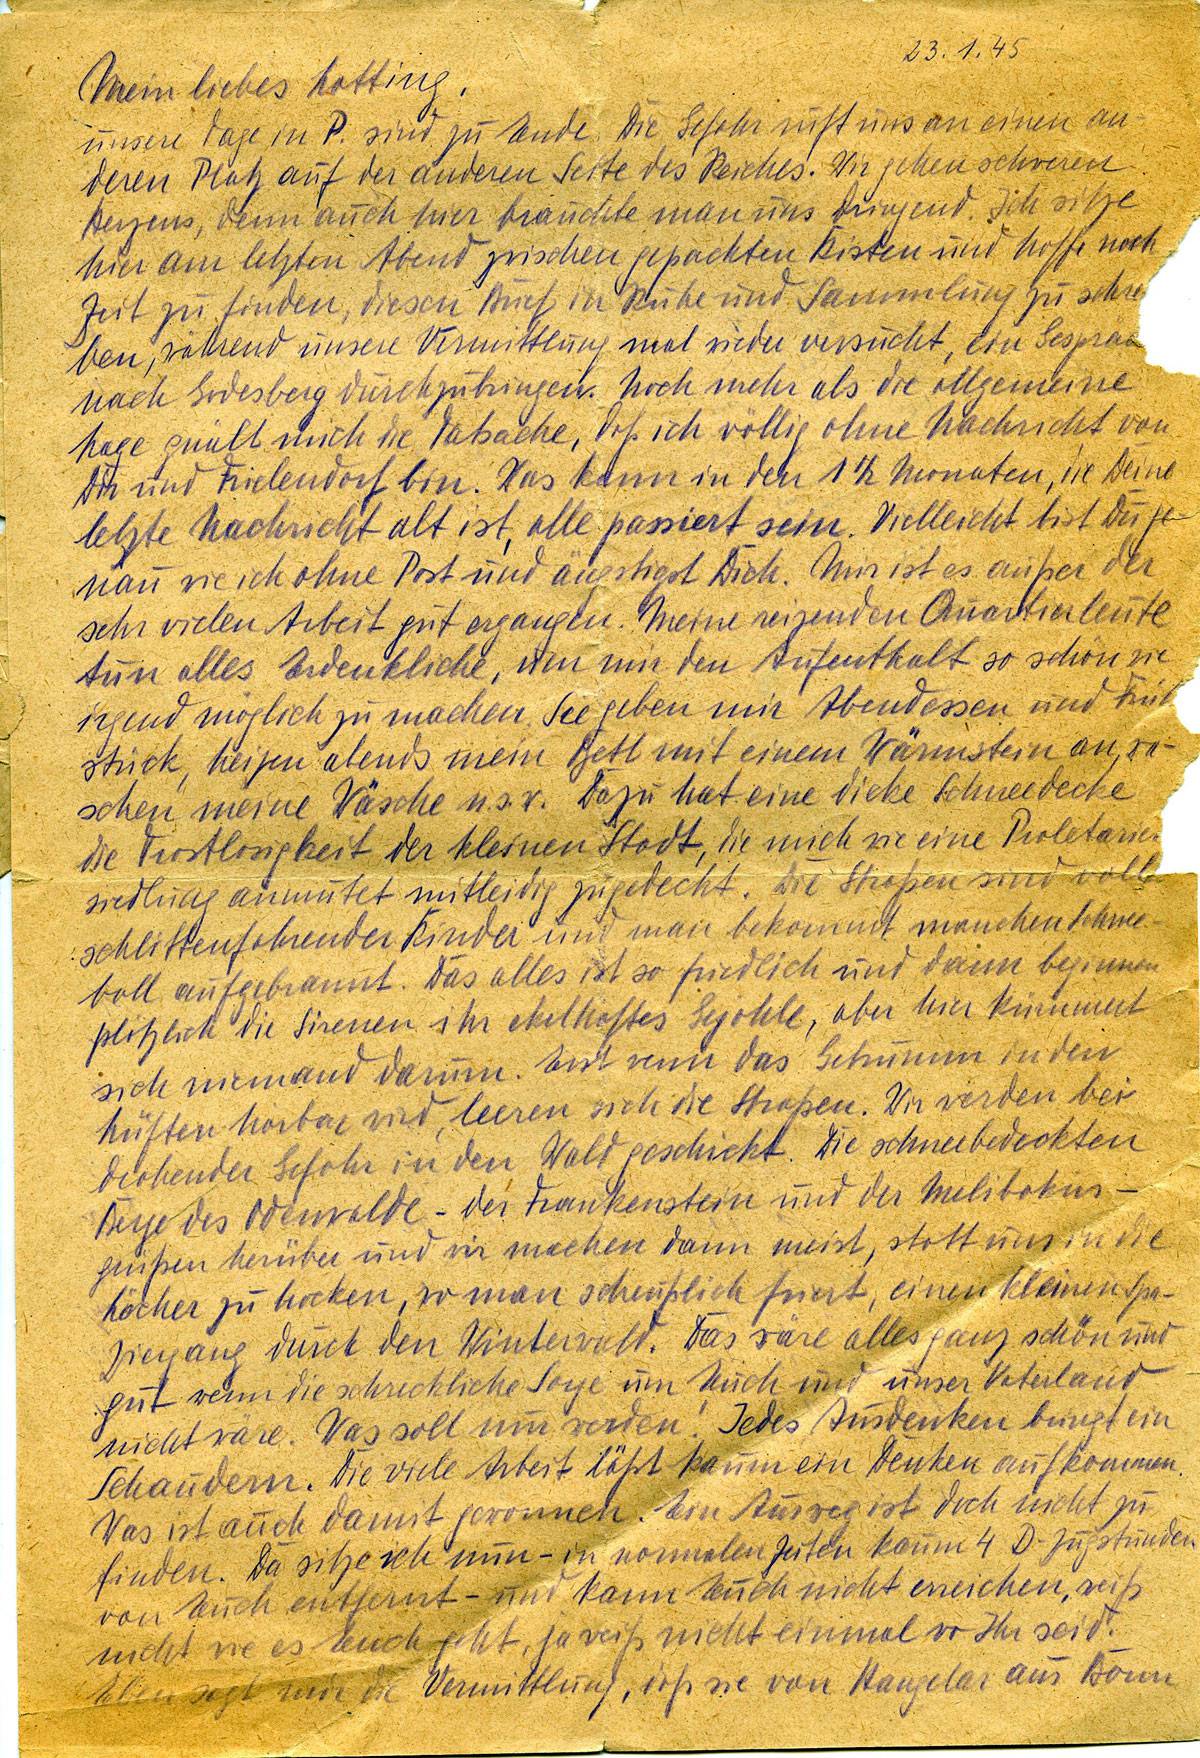 23.1.45
Mein liebes Lotting,
unsere Tage in P. sind zu Ende. Die Gefahr ruft uns an einen an-
deren Platz auf der anderen Seite des Reiches. Wir gehen schweren
Herzens, denn auch hier brauchte man uns dringend. Ich sitze
hier am letzten Abend zwischen gepackten Kisten und hoffe noch
Zeit zu finden, diesen Brief in Ruhe und Sammlung zu schrei
ben, während unsere Vermittlung mal wieder versucht, ein Gespräc
nach Godesberg durchzubringen. Noch mehr als die allgemeine
Lage quält mich die Tatsache, daß ich völlig ohne Nachricht von
Dir und Frielendorf bin. Was kann in den 1½ Monaten, die Deine
letzte Nachricht alt ist, alle passiert sein. Vielleicht bist Du ge-
nau wie ich ohne Post und ängstigst Dich. Mir ist es außer der
sehr vielen Arbeit gut ergangen. Meine reizenden Quartierleute
tun alles Erdenkliche, um mir den Aufenthalt so schön wie
irgend möglich zu machen. Sie geben mir Abendessen und Früh
stück, heizen abends mein Bett mit einem Wärmstein an, wa-
schen meine Wäsche u.s.w. Dazu hat eine dicke Schneedecke
die Trostlosigkeit der kleinen Stadt, die mich wie eine Proletarier
siedlung anmutet mitleidig zugedeckt. Die Straßen sind voll
schlittenfahrender Kinder und man bekommt manchen Schnee-
ball aufgebrannt. Das alles ist so friedlich und dann beginnen
plötzlich die Sirenen ihr ekelhaftes Gejohle, aber hier kümmert
sich niemand darum. Erst wenn das Gebrumm in den
Lüften hörbar wird, leeren sich die Straßen. Wir werden bei
drohender Gefahr in den Wald geschickt. Die schneebedeckten
Berge des Odenwalde - der Frankenstein und der Melibokus -
grüßen herüber und wir machen dann meist, statt uns in die
Löcher zu hocken, wo man scheußlich friert, einen kleinen Spa-
ziergang durch den Winterwald. Das wäre alles ganz schön und
gut wenn die schreckliche Sorge um Euch und unser Vaterland
nicht wäre. Was soll nun werden! Jedes Ausdenken bringt ein
Schaudern. Die viele Arbeit läßt kaum ein Denken aufkommen.
Was ist auch damit gewonnen. Ein Ausweg ist doch nicht zu
finden. Da sitze ich nun - in normalen Zeiten kaum 4 D-Zugstunden
von Euch entfernt - und kann Euch nicht erreichen, weiß
nicht wie es Euch geht, ja weiß nicht einmal wo Ihr seid.
Eben sagt mir die Vermittlung, daß sie von Hangelar aus Bonn